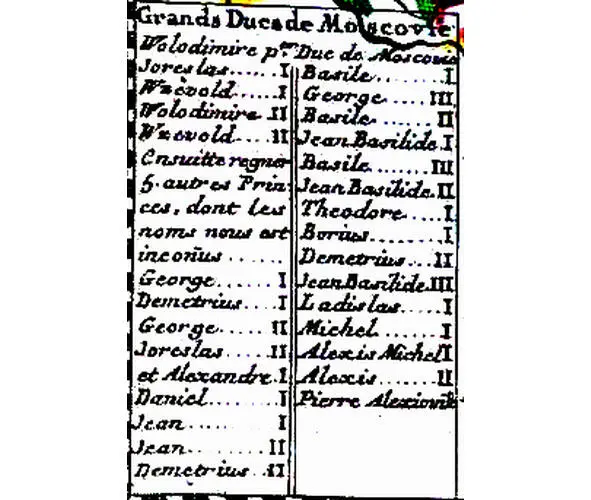 Grands Ducs de Moscovie
Wolodimire p.er Duc de Moscovie
Joreslas......I
Wzevold.....I
Wolodimire II
Wzevold....II
Ensuitte regner
5. autres Prin-
ces, dont les
noms nous est
inconus......
George......I
Demetrius....I
George......II
Joreslas.....II
et Alexandre.I
Daniel.......I
Jean........I
Jean.......II
Demetrius..II
Basile........I
George.....III
Basile.......II
Jean Basilide.I
Basile.......III
Jean Basilide.II
Theodore....I
Borius.......I
Demetrius...II
Jean Basilide III
Ladislas.....I
Michel.......I
Alexis Michel I
Alexis.......II
Pierre Alexiowit